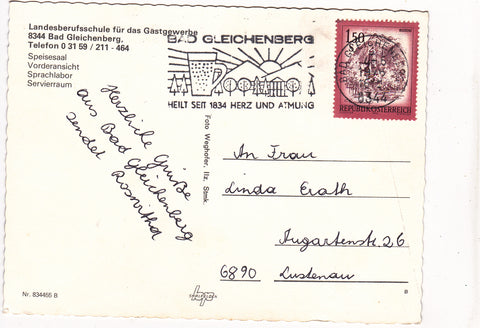 Landesberufsschule für das Gastgewerbe
8344 Bad Gleichenberg,
Telefon 0 31 59 / 211 - 464
Speisesaal
Vorderansicht
Sprachlabor
Servierraum
BAD GLEICHENBERG
HEILT SEIT 1834 HERZ UND ATMUNG
1.50
REPUBLIK ÖSTERREICH
8344
Herzliche Grüße
aus Bad Gleichenberg
sendet Roswitha
Foto Weghofer, Ilz, Stmk.
An Frau
Linda Erath
Augartenstr. 26
6890 Lustenau
Nr. 834465 B
B